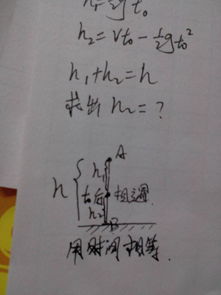 h₁=½gt₀
h₂=Vt₀-½gt₀²
h₁+h₂=h
求出 h₂=?
A
h
h₁
t₀后
相遇
h₂
B
用时间相等.